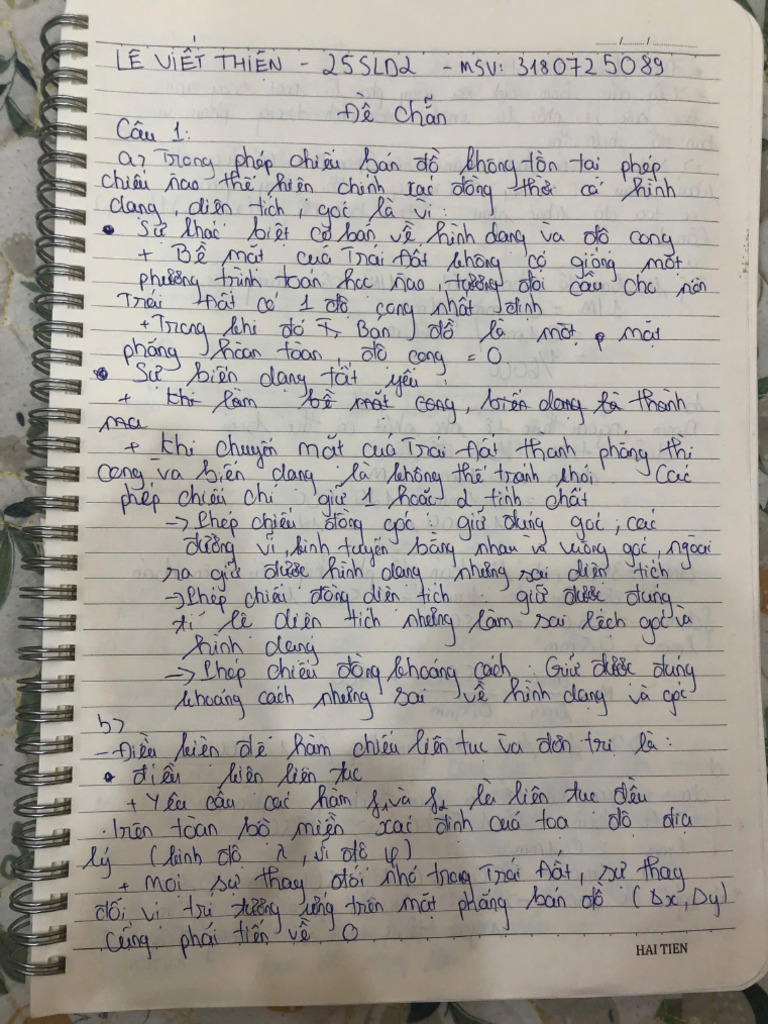 LÊ VIẾT THIÊN - 25SLD2 - MSV: 3180725089
Đề Chẵn
Câu 1:
a) Trong phép chiếu bản đồ không tồn tại phép
chiếu nào thể hiện chính xác đồng thời cả hình
dạng, diện tích, góc là vì:
• Sự khác biệt cơ bản về hình dạng và độ cong
+ Bề mặt của Trái Đất không có giống một
phương trình toán học nào, tương đối cầu cho nên
Trái Đất có 1 độ cong nhất định
+ Trong khi đó Bản đồ là một mặt
phẳng hoàn toàn, độ cong = 0
• Sự biến dạng tất yếu:
+ Khi làm bề mặt cong, biến dạng là thành
+ Khi chuyển mặt của Trái Đất thành phẳng thì
cong và biến dạng là không thể tránh khỏi Các
phép chiếu chỉ giữ 1 hoặc 2 tính chất
-> Phép chiếu đồng góc: giữ đúng góc, các
đường vĩ, kinh tuyến bằng nhau và vuông góc, ngoài
ra giữ được hình dạng nhưng sai diện tích
-> Phép chiếu đồng diện tích: giữ được đúng
tỉ lệ diện tích nhưng làm sai lệch góc và
hình dạng
-> Phép chiếu đồng khoảng cách: Giữ được đúng
khoảng cách nhưng sai về hình dạng và góc
b)
- Điều kiện để hàm chiếu liên tục và đơn trị là:
• điều kiện liên tục
+ Yêu cầu các hàm f1 và f2 là liên tục đều
trên toàn bộ miền xác định của toạ độ địa
lý (kinh độ λ, vĩ độ φ)
+ Mọi sự thay đổi nhỏ trong Trái Đất, sự thay
đổi vị trí tương ứng trên mặt phẳng bản đồ (Δx, Δy)
cũng phải tiến về 0
HAI TIEN